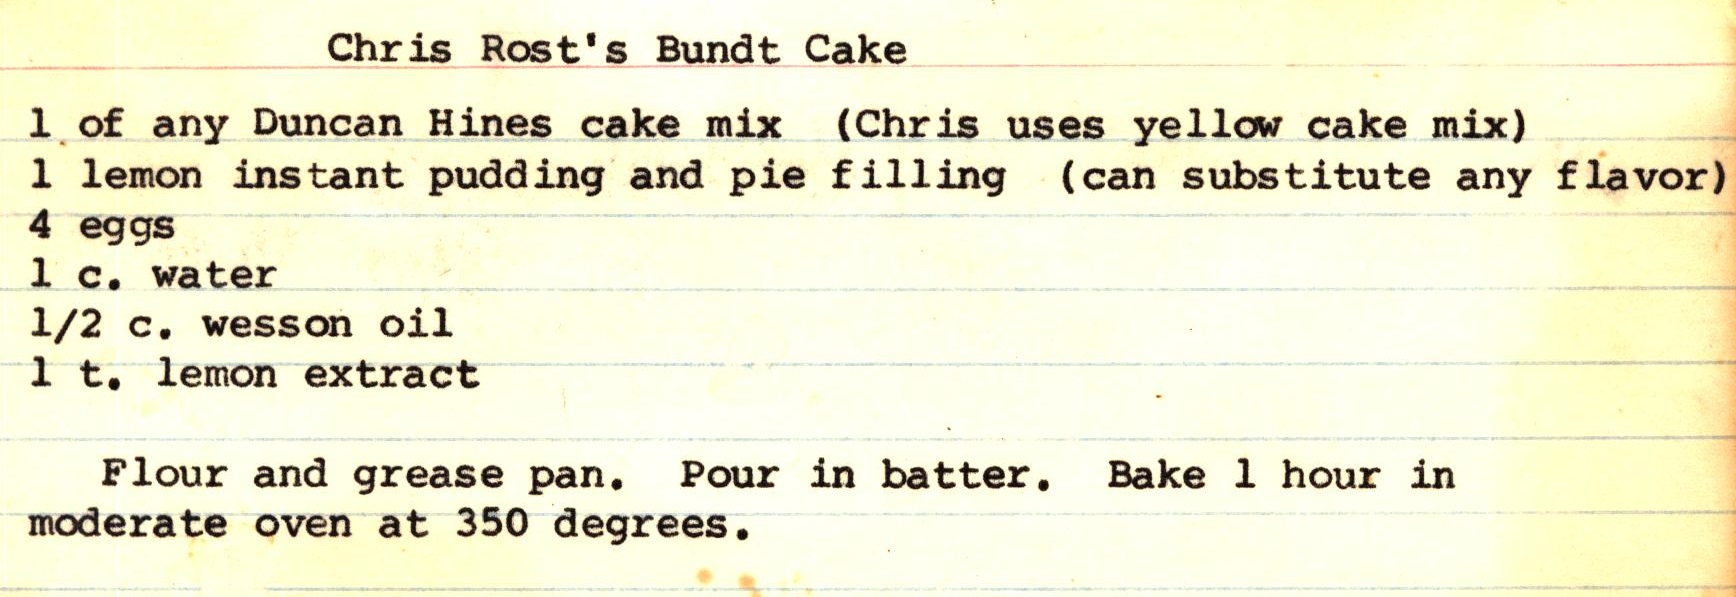 Chris Rost's Bundt Cake
1 of any Duncan Hines cake mix (Chris uses yellow cake mix)
1 lemon instant pudding and pie filling (can substitute any flavor)
4 eggs
1 c. water
1/2 c. wesson oil
1 t. lemon extract
Flour and grease pan. Pour in batter. Bake 1 hour in
moderate oven at 350 degrees.